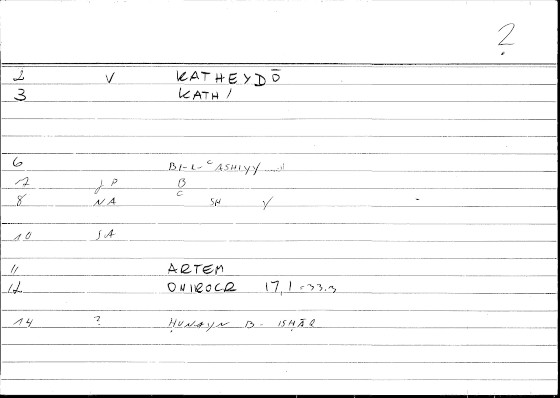 2
2 V KATHEYDŌ
3 KATH/
6 BI-L-ᶜASHIYY
7 JP B
8 NA C SH Y
10 SA
11 ARTEM
12 ONIROCR 17,1-33.3
14 ? ḤUNAYN B. ISḤĀQ